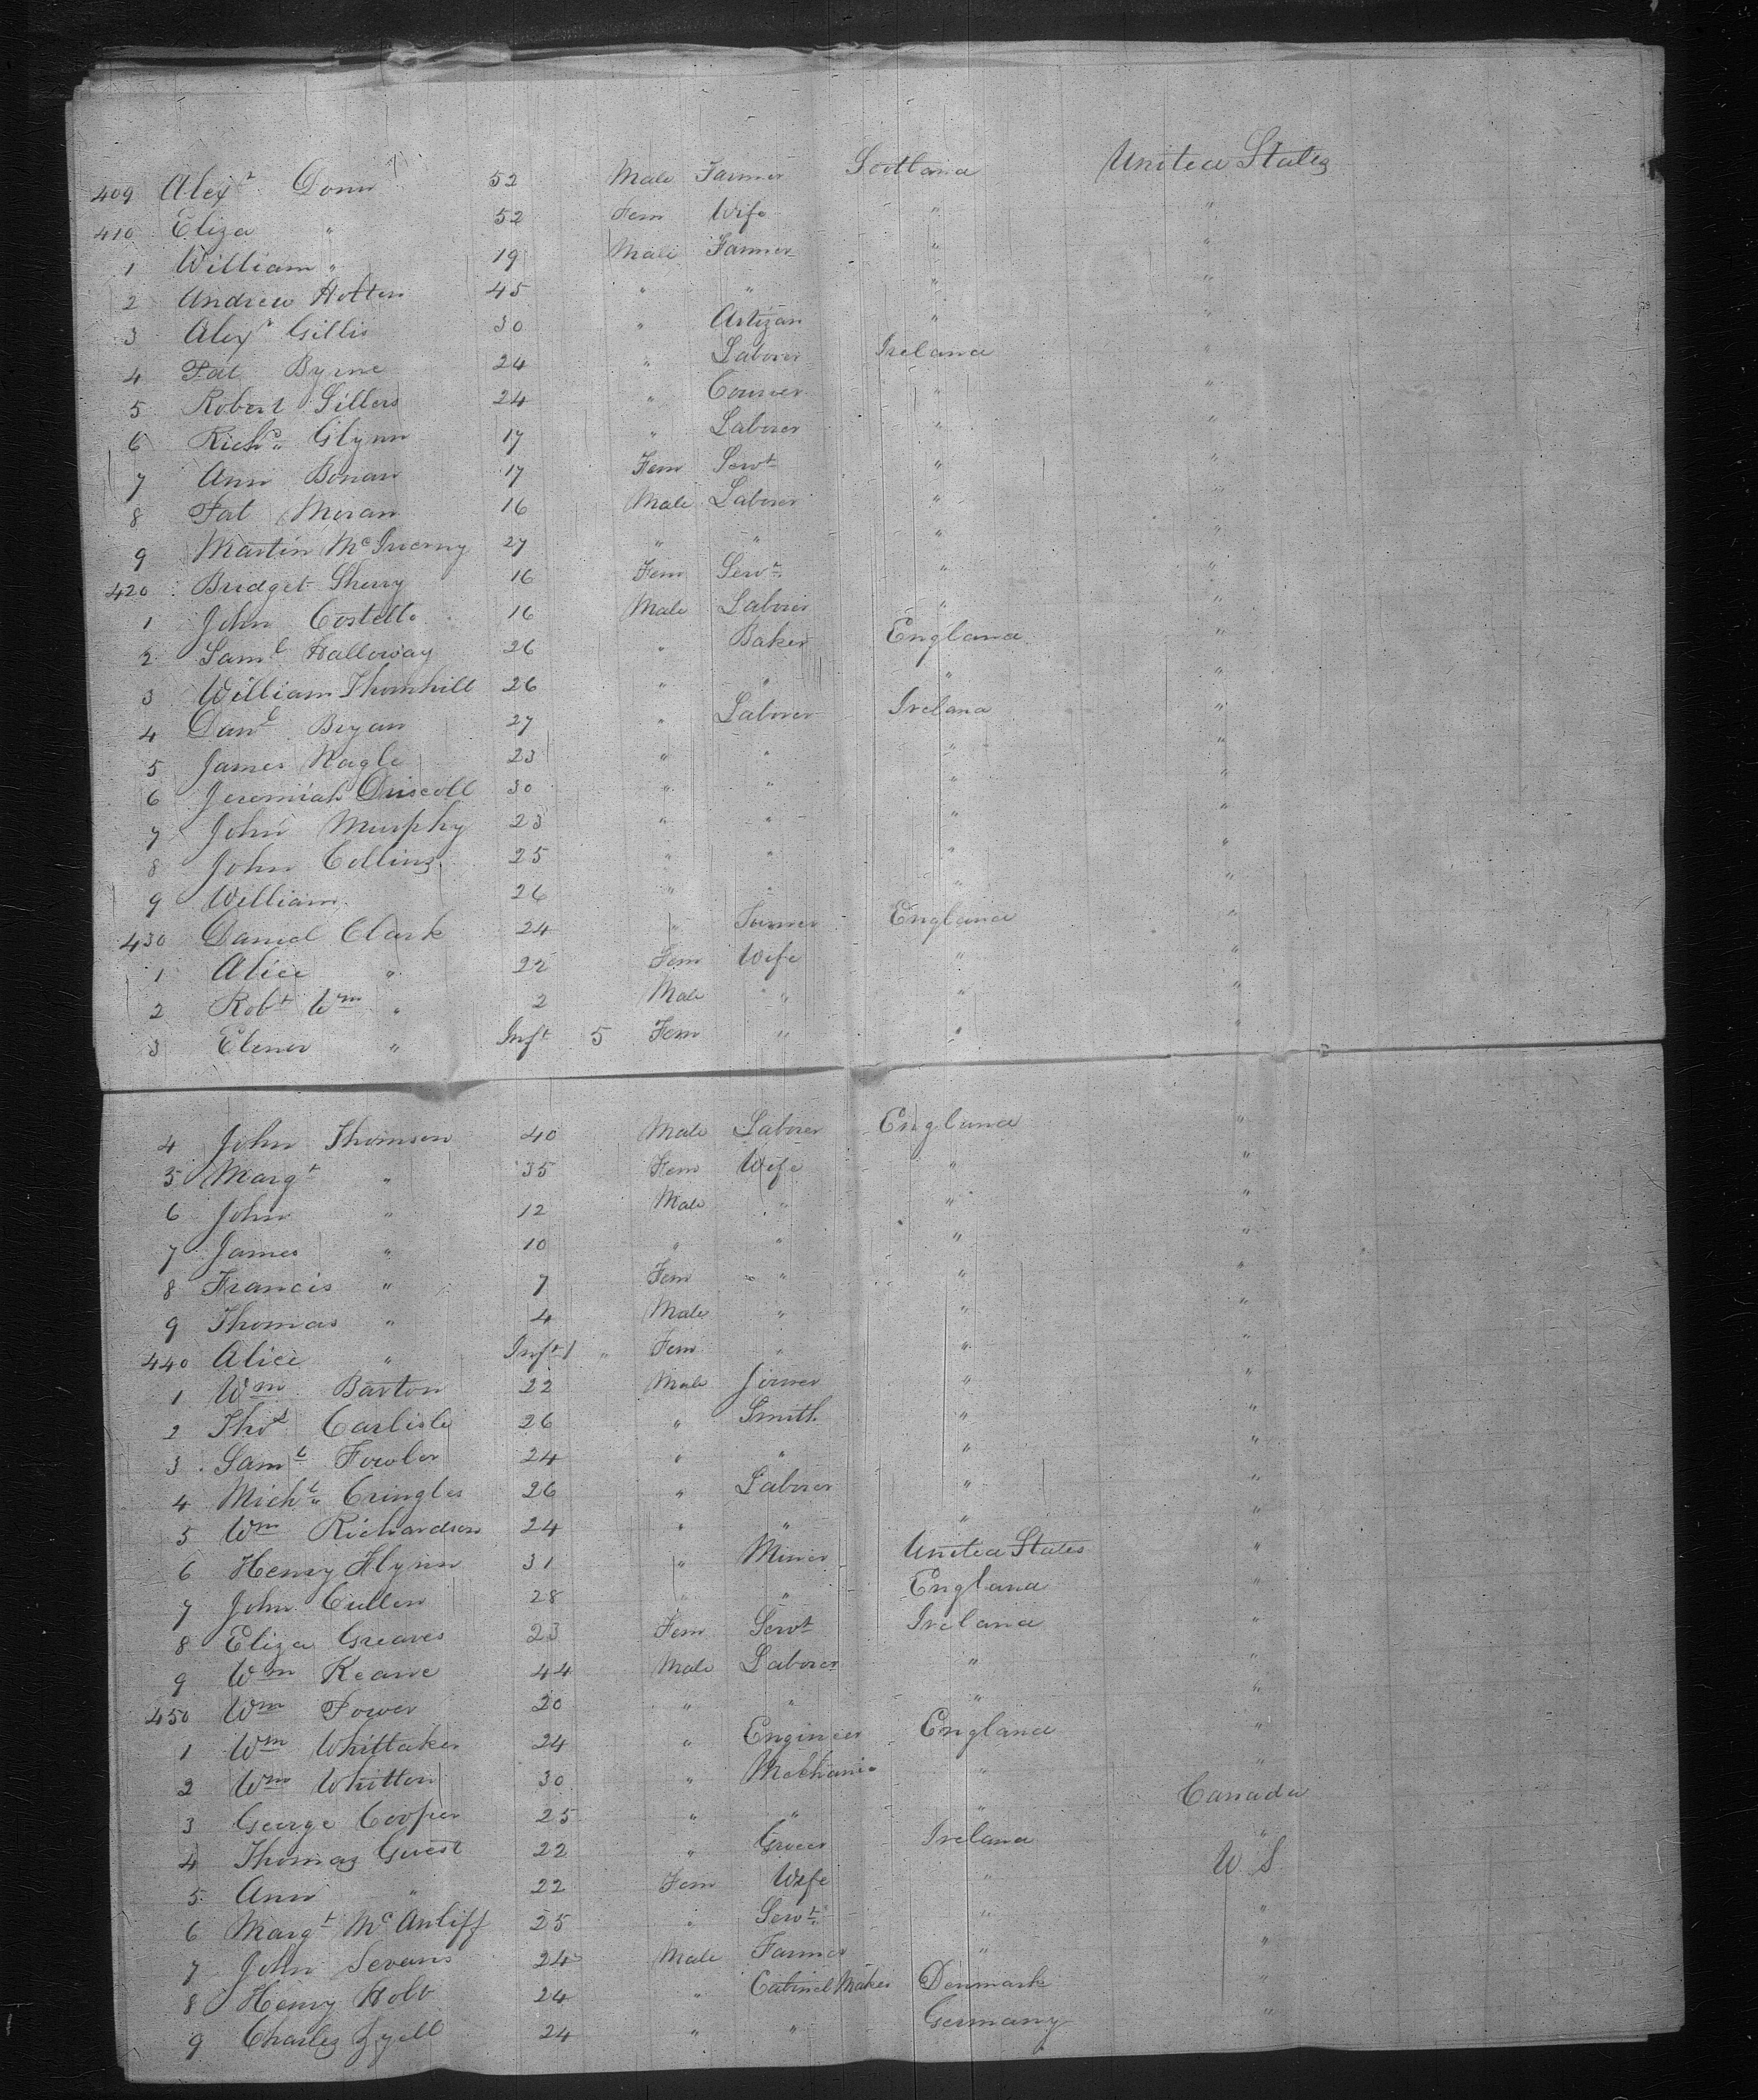 409 Alexr Donn 52 Male Farmer Scotland United States
410 Eliza " 52 Fem Wife " "
1 William " 19 Male Farmer " "
2 Andrew Hotten 45 " " " "
3 Alexr Gillis 30 " Artizan " "
4 Pat Byrne 24 " Laborer Ireland "
5 Robert Sillers 24 " " "
6 Richd Glynn 17 " Laborer " "
7 Ann Bonan 17 Fem Servt " "
8 Pat Moran 16 Male Laborer " "
9 Martin 27 " " " "
420 Bridget Sherry 16 Fem Servt " "
1 John Costello 16 Male Laborer " "
2 Saml Halloway 26 " Baker England "
3 William Thornhill 26 " " " "
4 Danl Bryan 27 " Laborer Ireland "
5 James Nagle 23 " " " "
6 Jeremiah Driscoll 30 " " " "
7 John Murphy 23 " " " "
8 John Collins 25 " " " "
9 William 26 " " " "
430 Daniel Clark 24 " Farmer England "
1 Alice " 22 Fem Wife " "
2 Robt Wm " 2 Male " " "
3 Elenor " Inft 5 Fem " " "
4 John Thomson 40 Male Laborer England "
5 Margt " 35 Fem Wife " "
6 John " 12 Male " " "
7 James " 10 " " " "
8 Francis " 7 Fem " " "
9 Thomas " 4 Male " " "
440 Alice " Inft 1 " Fem " " "
1 Wm Barton 22 Male Joiner " "
2 Thos Carlisle 26 " Smith " "
3 Saml Fowler 24 " " " "
4 Michl Cringles 26 " Laborer " "
5 Wm Richardson 24 " " " "
6 Henry Flynn 31 " Miner United States "
7 John Cullen 28 " " England "
8 Eliza Greaves 23 Fem Servt Ireland "
9 Wm Keane 44 Male Laborer " "
450 Wm Power 20 " " " "
1 Wm Whittaker 24 " Engineer England "
2 Wm Whitten 30 " Mechanic " "
3 George Cooper 25 " " " Canada
4 Thomas Guest 22 " Grocer Ireland "
5 Ann " 22 Fem Wife " U S
6 Margt McAuliff 25 " Servt " "
7 John Sevens 24 Male Farmer " "
8 Henry Holt 24 " Cabinet Maker Denmark "
9 Charles Zyell 24 " " Germany "